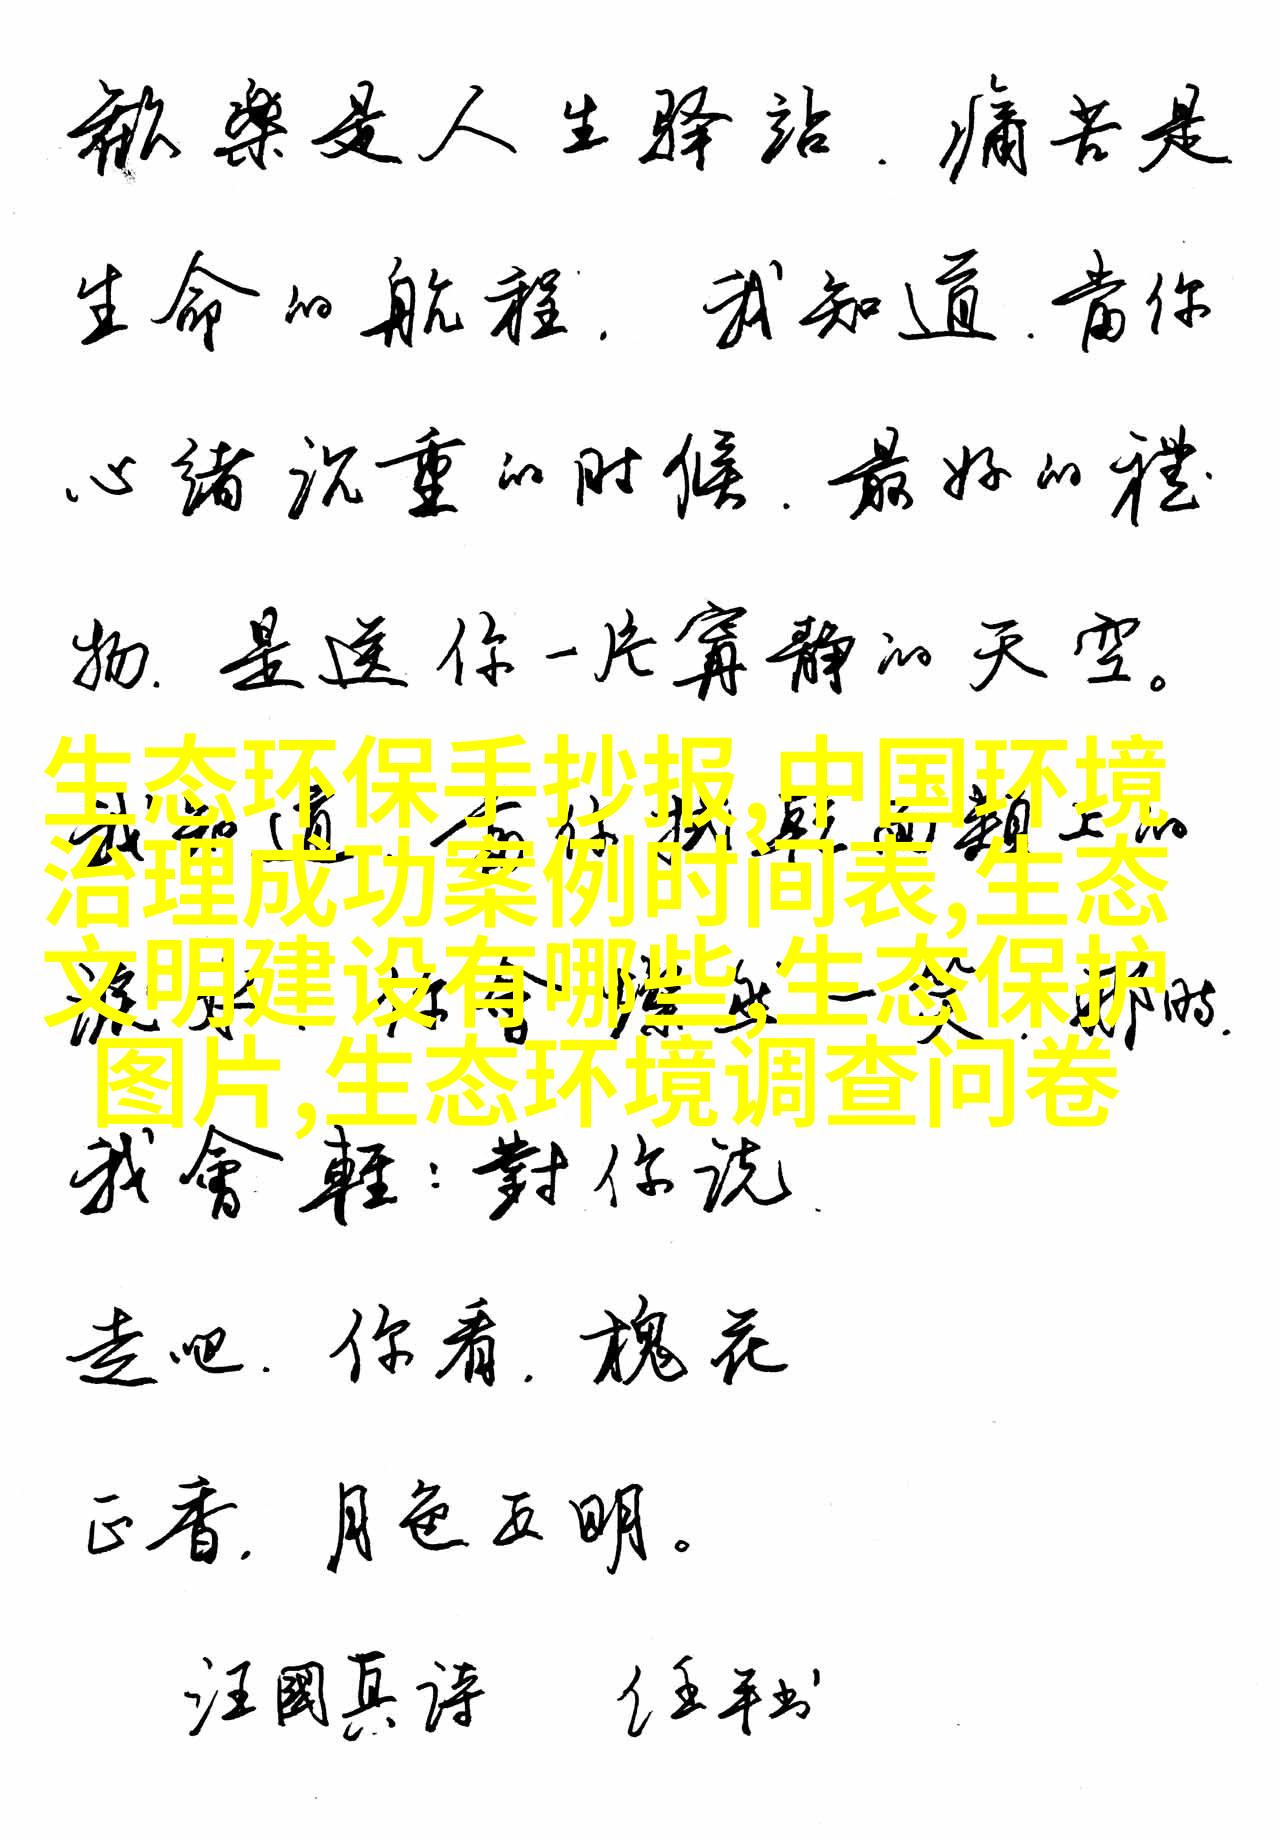 歡樂是人生驿站.痛苦是
生命的航程.我知道.當你
心緒沉重的时候.最好的禮
物.是送你一片寧静的天空。
生态环保手抄报,中国环境
治理成功案例时间表,生态
文明建设有哪些,生态保护
图片,生态环境调查问卷
我會輕:對你说.
走吧.你看.槐花
正香.月色正明。
汪國真诗 任平书